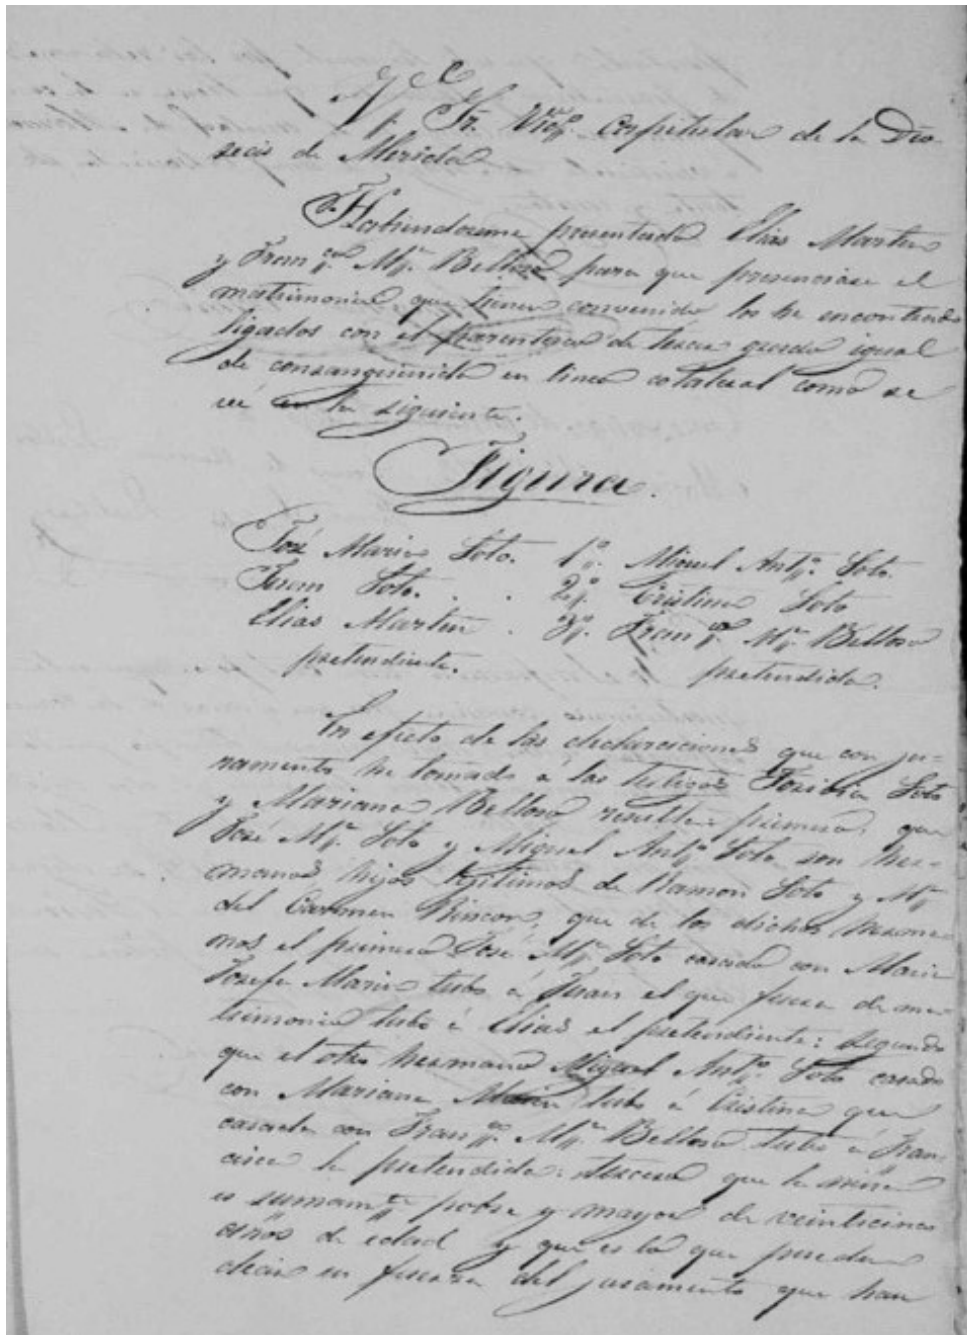 Y. Sr. Vicº. Capitular de la Dió-
sesis de Merida
Habiendoseme presentado Elias Martin
y Franca. Ma. Belloso para que presenciase el
matrimonio que tienen convenido los he encontrado
ligados con el parentesco de tercer grado igual
de consanguinida en linea colateral como se
vé en la siguiente.
Figura.
José Maria Soto. 1º. Miguel Antº. Soto.
Juan Soto. . . 2º. Cristina Soto
Elias Martin . 3º. Franca. Ma. Belloso
pretendiente. pretendida.
En efecto de las declaraciones que con ju-
ramento he tomado á las testigos Toribia Soto
y Mariana Belloso resulta: primero, que
José Ma. Soto y Miguel Antº. Soto son her-
manos hijos legitimos de Ramon Soto y Ma.
del Carmen Rincon, que de los dichos herma-
nos el primero José Ma. Soto casado con Maria
Josefa Marin tubo á Juan el que fuera de ma-
trimonio tubo á Elias el pretendiente: segundo
que el otro hermano Miguel Antº. Soto casado
con Mariana tubo á Cristina que
casada con Franco. Ma. Belloso tubo á Fran-
cisca la pretendida: tercero que la misma
es sumamte. pobre y mayor de veinticinco
años de edad y que es lo que pueden
decir en fuerza del juramento que han